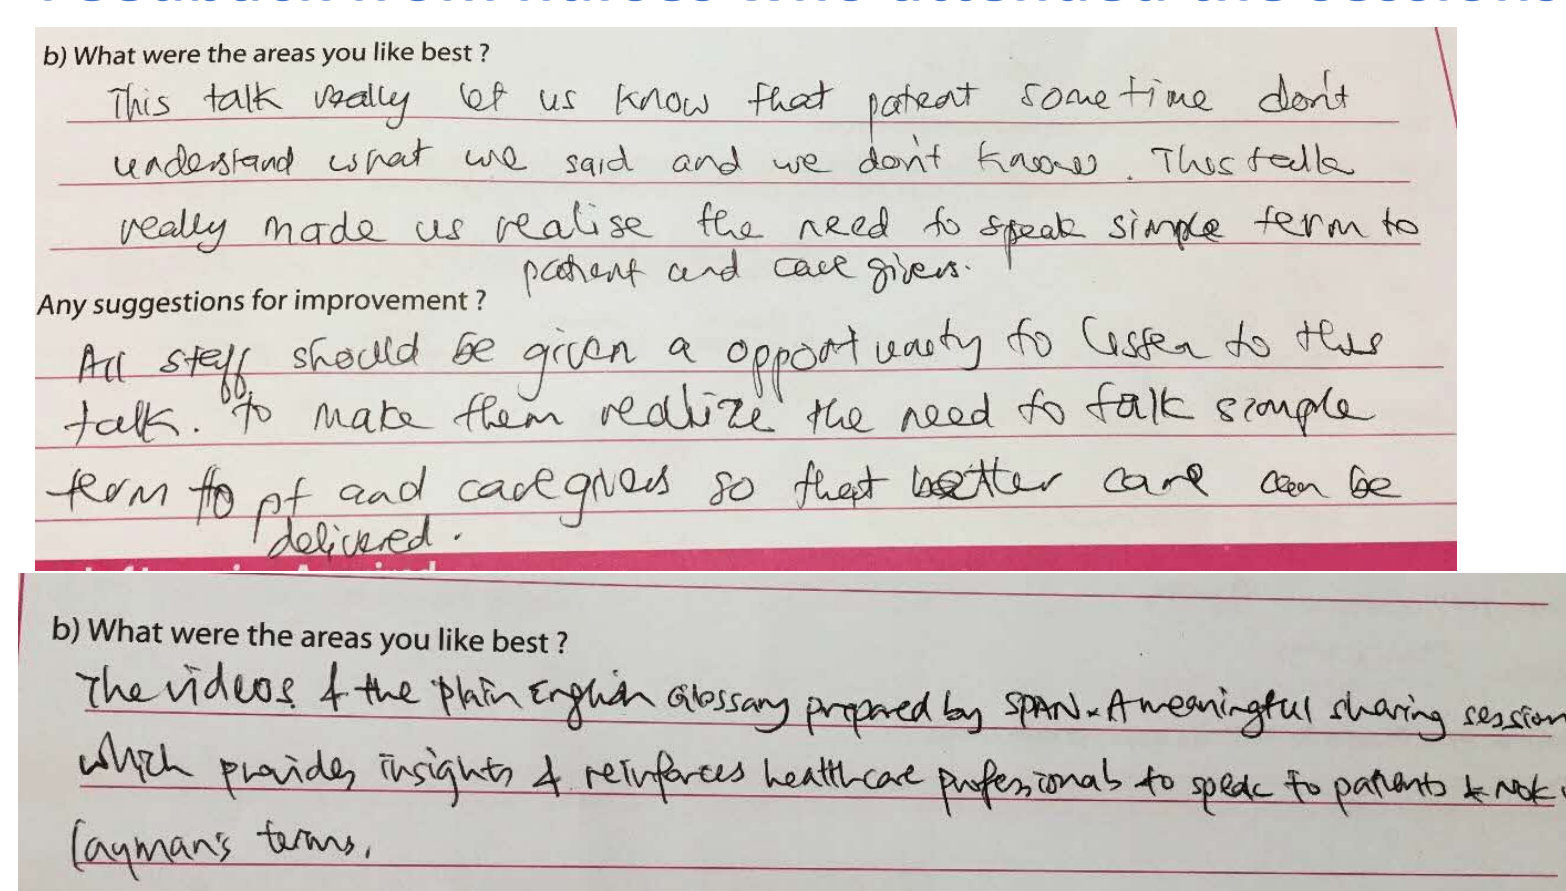 Feedback from nurses who attended the sessions
b) What were the areas you like best ?
This talk really let us know that patient sometime don't
understand what we said and we don't know. This talk
really made us realise the need to speak simple term to
patient and care givers.
Any suggestions for improvement ?
All staff should be given a opportunity to listen to this
talk. To make them realize the need to talk simple
term to pt and caregivers so that better care can be
delivered.
b) What were the areas you like best ?
The videos & the plain English Glossary prepared by SPAN. A meaningful sharing session
which provides insights & reinforces healthcare professionals to speak to patients &
layman's terms.